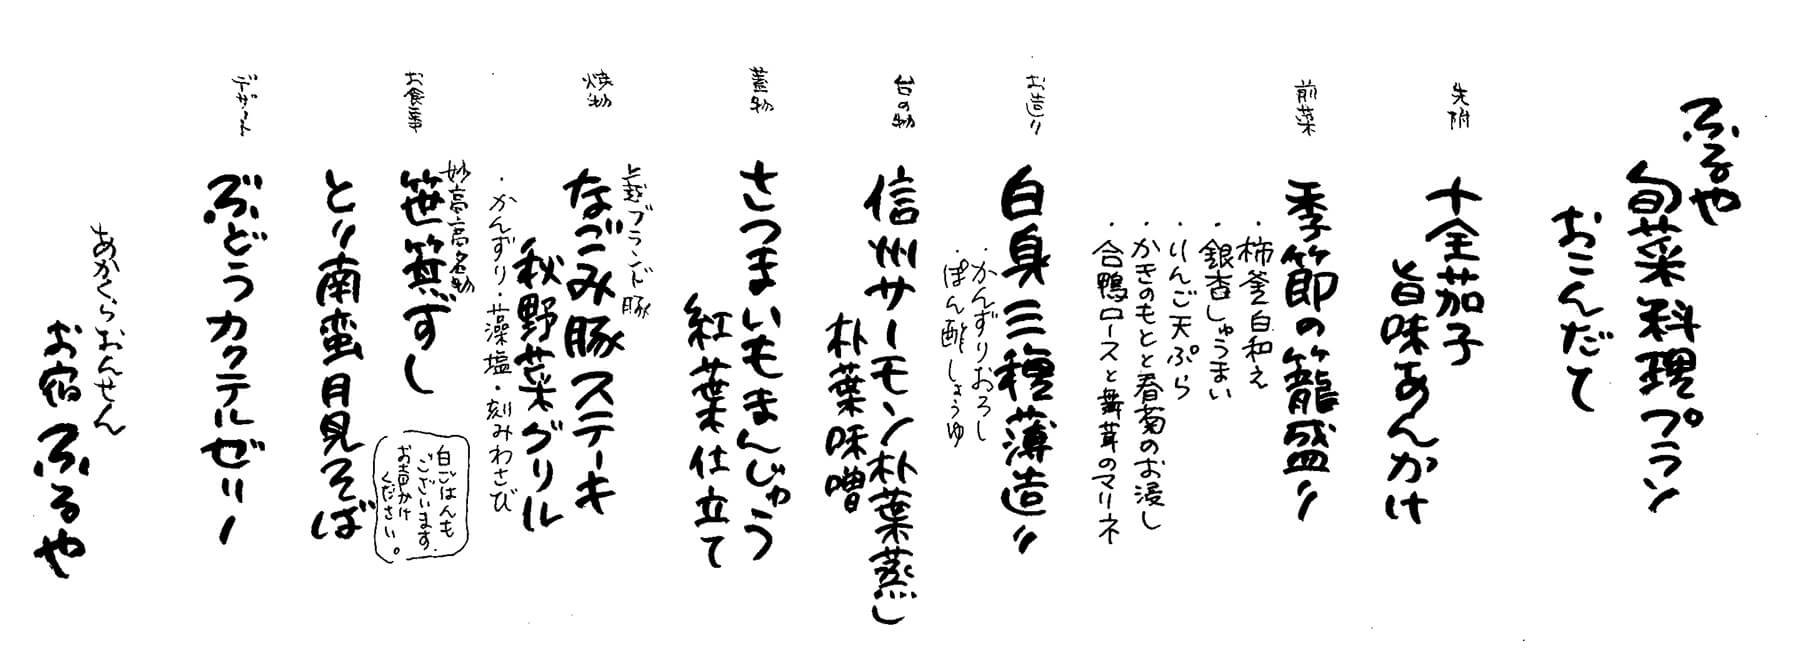 ふるや
旬菜料理プラン
おこんだて
先附
十全茄子
旨味あんかけ
前菜
季節の籠盛り
・柿釜白和え
・銀杏しゅうまい
・りんご天ぷら
・かきのもとと春菊のお浸し
・合鴨ロースと舞茸のマリネ
お造り
白身三種薄造り
・かんずりおろし
・ぽん酢しょうゆ
台の物
信州サーモン朴葉蒸し
朴葉味噌
蓋物
さつまいもまんじゅう
紅葉仕立て
焼物
上越ブランド豚
なごみ豚ステーキ
秋野菜グリル
・かんずり・藻塩・刻みわさび
お食事
妙高高名物
笹寿し
白ごはんも
ございます。
お声かけ
ください。
とり南蛮月見そば
デザート
ぶどうカクテルゼリー
あかくらおんせん
お宿ふるや